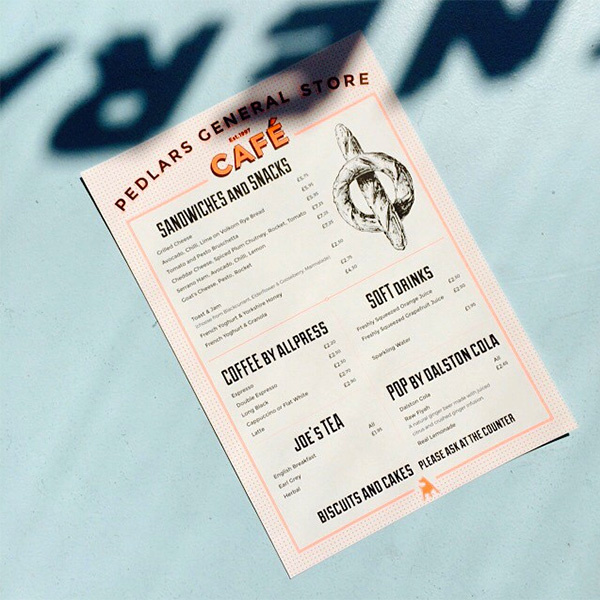 NERA
PEDLARS GENERAL STORE
Est.1997
CAFÉ
SANDWICHES AND SNACKS
Grilled Cheese £5.75
Avocado, Chilli, Lime on Volkorn Rye Bread £5.95
Tomato and Pesto Bruschetta £5.95
Cheddar Cheese, Spiced Plum Chutney, Rocket, Tomato £7.25
Serrano Ham, Avocado, Chilli, Lemon £7.25
Goat's Cheese, Pesto, Rocket £7.25
Toast & Jam £2.50
(choose from Blackcurrant, Elderflower & Gooseberry, Marmalade)
French Yoghurt & Yorkshire Honey £2.75
French Yoghurt & Granola £4.50
COFFEE BY ALLPRESS
Espresso £2.20
Double Espresso £2.50
Long Black £2.50
Cappuccino or Flat White £2.70
Latte £2.90
JOE'S TEA
All
English Breakfast £1.95
Earl Grey
Herbal
SOFT DRINKS
Freshly Squeezed Orange Juice £2.50
Freshly Squeezed Grapefruit Juice £2.50
Sparkling Water £1.90
POP BY DALSTON COLA
All
Dalston Cola £2.65
Raw Fiyah
A natural ginger beer made with juiced
citrus and crushed ginger infusion
Real Lemonade
BISCUITS AND CAKES PLEASE ASK AT THE COUNTER